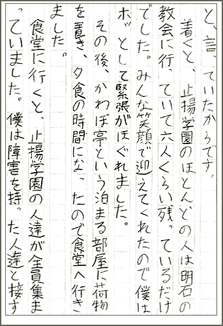 と、言っていたからです。
着くと、止揚学園のほとんどの人は明石の
教会に行っていて六人くらい残っているだけ
でした。みんな笑顔で迎えてくれたので僕は
ホッとして緊張がほぐれました。
その後、かわぼ亭という泊まる部屋に荷物
を置き、夕食の時間になったので食堂へ行き
ました。
食堂に行くと、止揚学園の人達が全員集ま
っていました。僕は障害を持った人達と接す